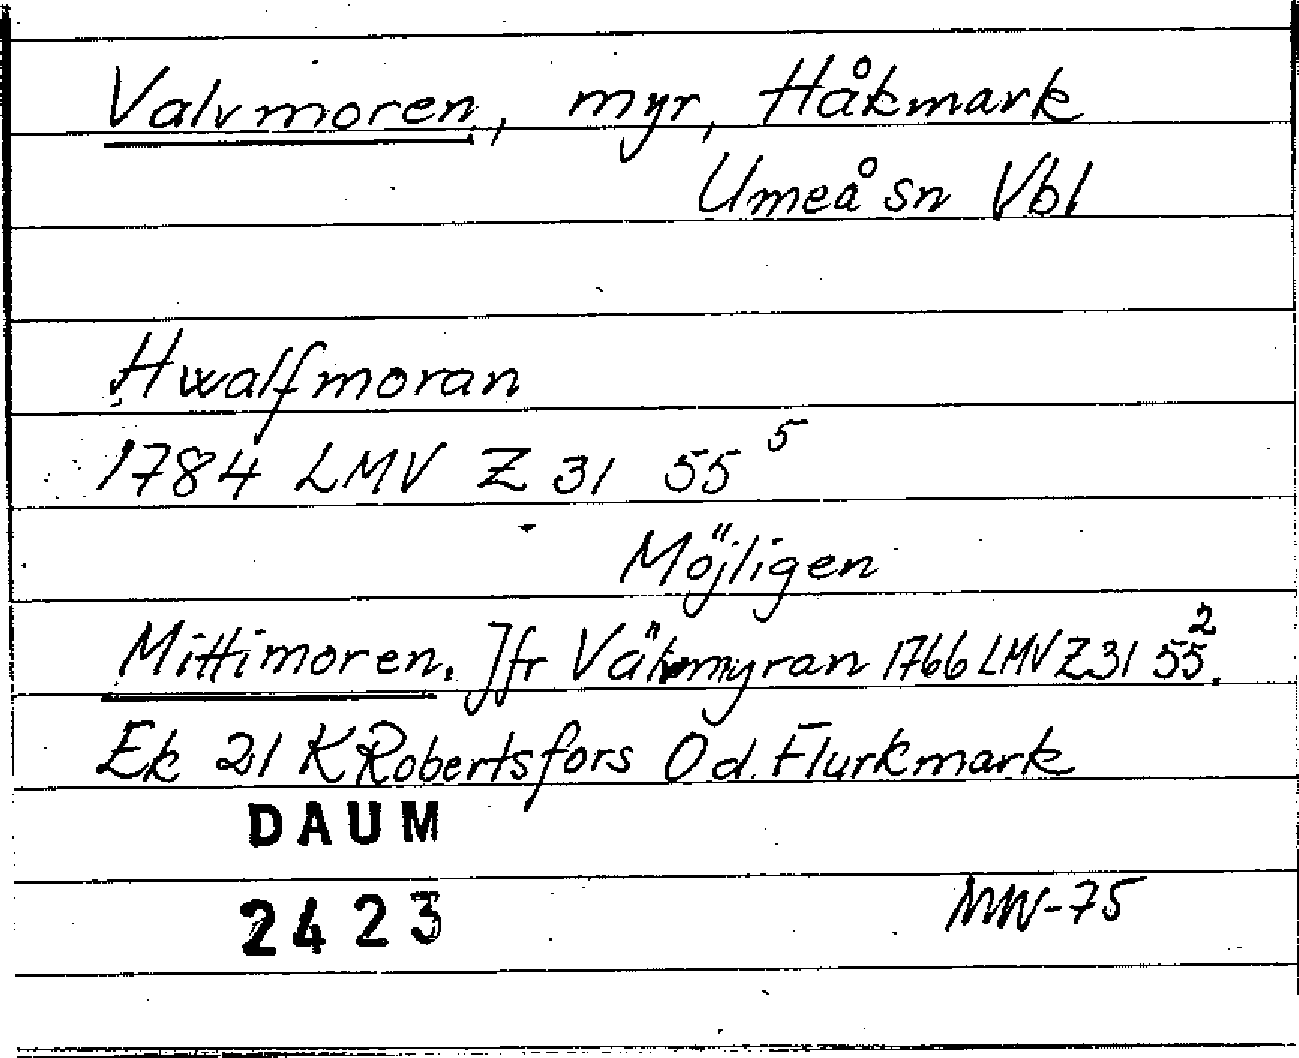 Valvmoren, myr, Håkmark
Umeå sn Vbl
Hwalfmoran
1784 LMV Z 31 55⁵
Möjligen
Mittimoren. Jfr 1766 LMV Z 31 55².
Ek 21 K Robertsfors Od. Flurkmark
DAUM
2423
MW-75